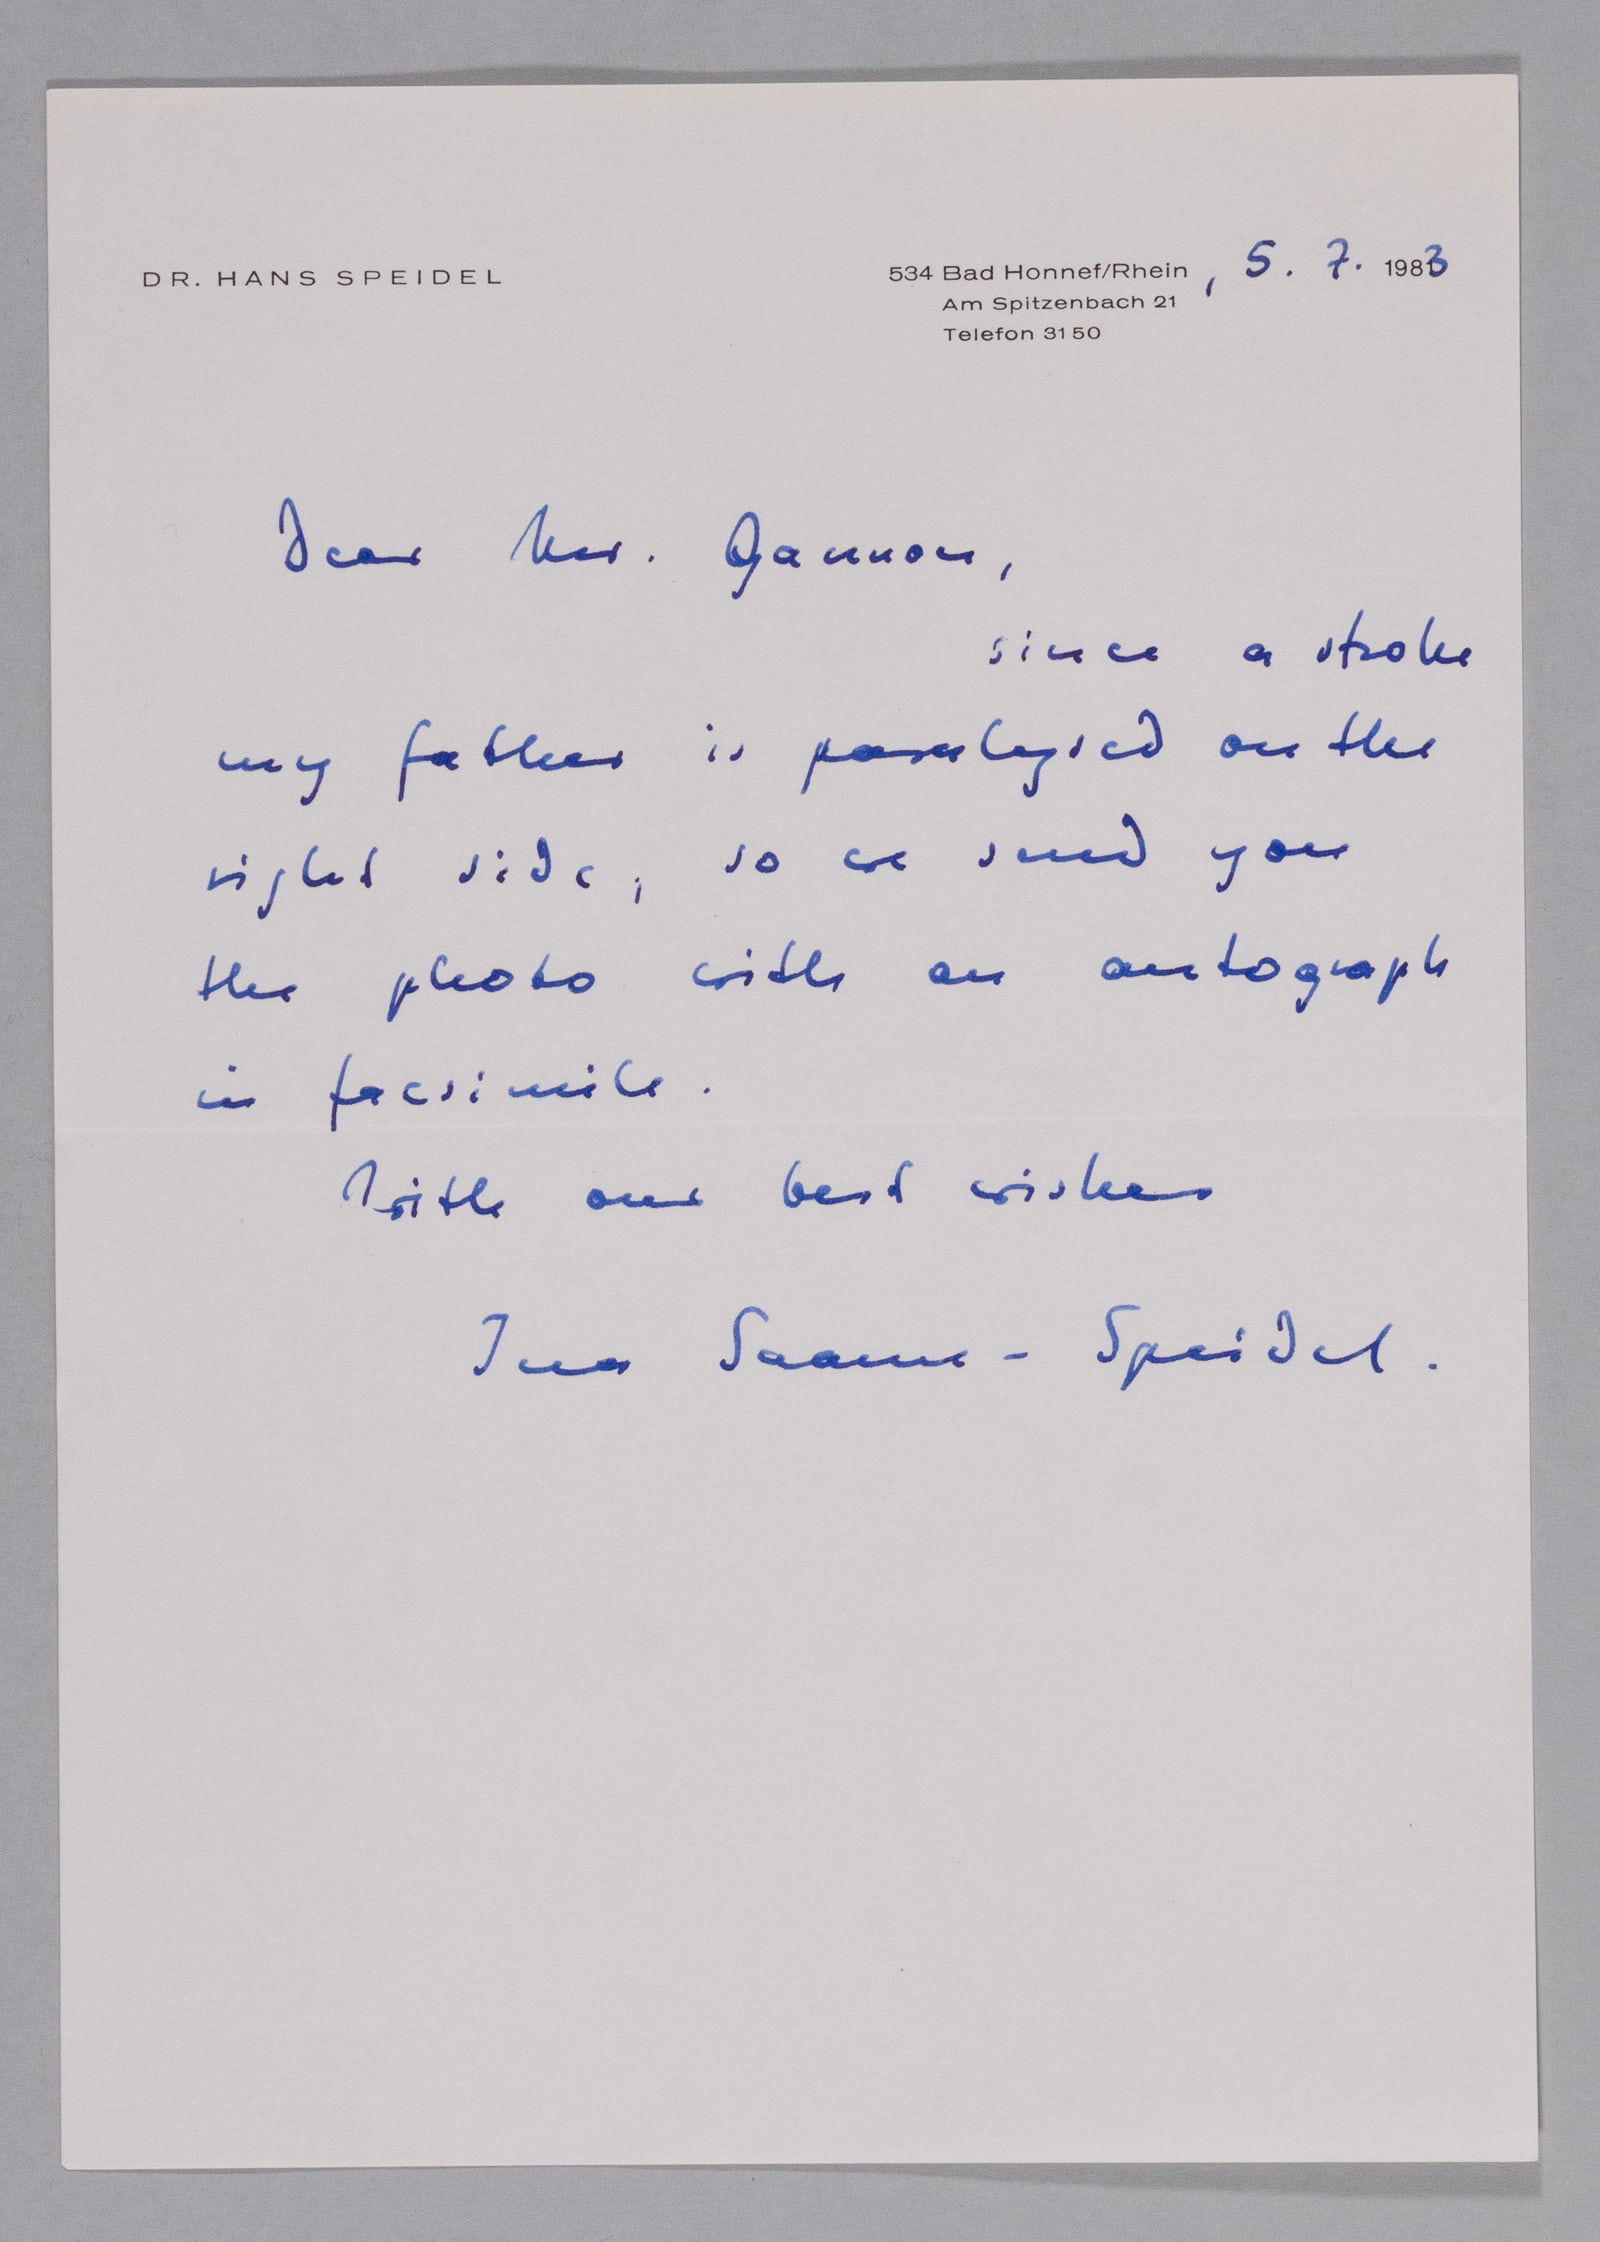 DR. HANS SPEIDEL
534 Bad Honnef/Rhein, 5. 7. 1983
Am Spitzenbach 21
Telefon 3150
Dear Mr. Gannon,
since a stroke
my father is paralysed on the
right side, so we send you
the photo with an autograph
in facsimile.
With our best wishes
Ina Saame-Speidel.